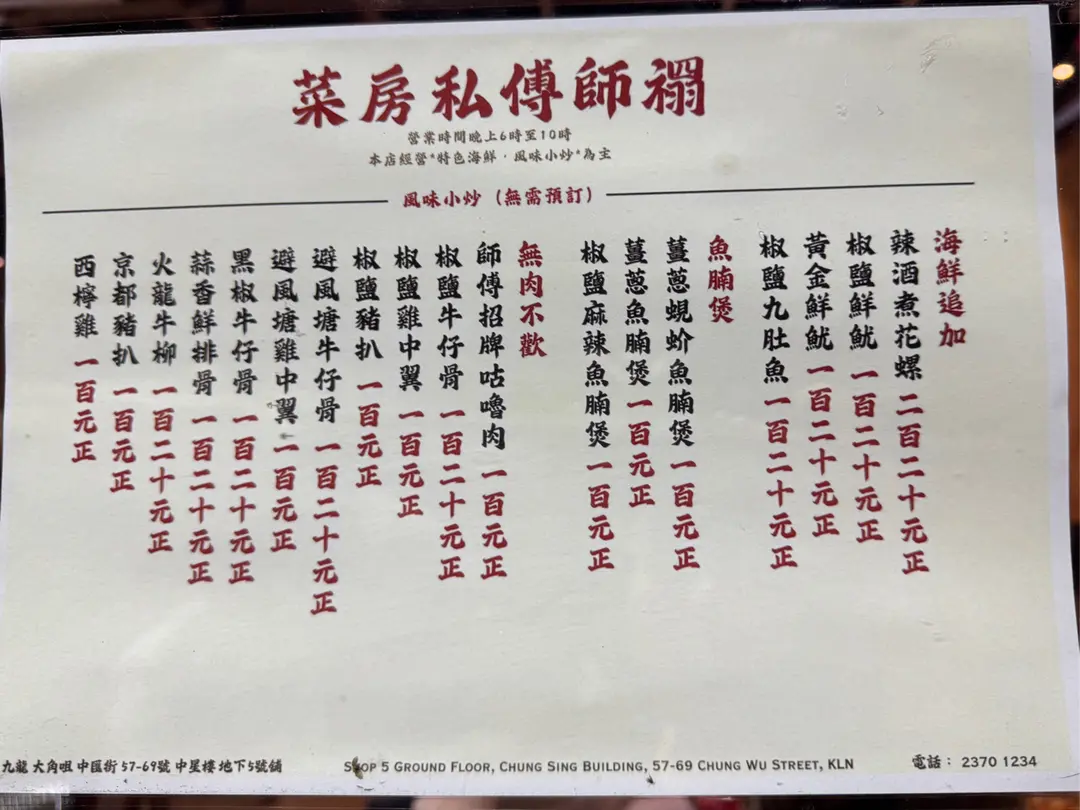 禤師傅私房菜
營業時間晚上6時至10時
本店經營*特色海鮮，風味小炒*為主
風味小炒（無需預訂）
海鮮追加
辣酒煮花螺 二百二十元正
椒鹽鮮魷 一百二十元正
黃金鮮魷 一百二十元正
椒鹽九肚魚 一百二十元正
魚腩煲
薑蔥蜆蚧魚腩煲 一百元正
薑蔥魚腩煲 一百元正
椒鹽麻辣魚腩煲 一百元正
無肉不歡
師傅招牌咕嚕肉 一百元正
椒鹽牛仔骨 一百二十元正
椒鹽雞中翼 一百元正
椒鹽豬扒 一百元正
避風塘牛仔骨 一百二十元正
避風塘雞中翼 一百元正
黑椒牛仔骨 一百二十元正
蒜香鮮排骨 一百二十元正
火龍牛柳 一百二十元正
京都豬扒 一百元正
西檸雞 一百元正
九龍 大角咀 中匯街 57-69號 中星樓 地下5號舖
SHOP 5 GROUND FLOOR, CHUNG SING BUILDING, 57-69 CHUNG WU STREET, KLN
電話： 2370 1234